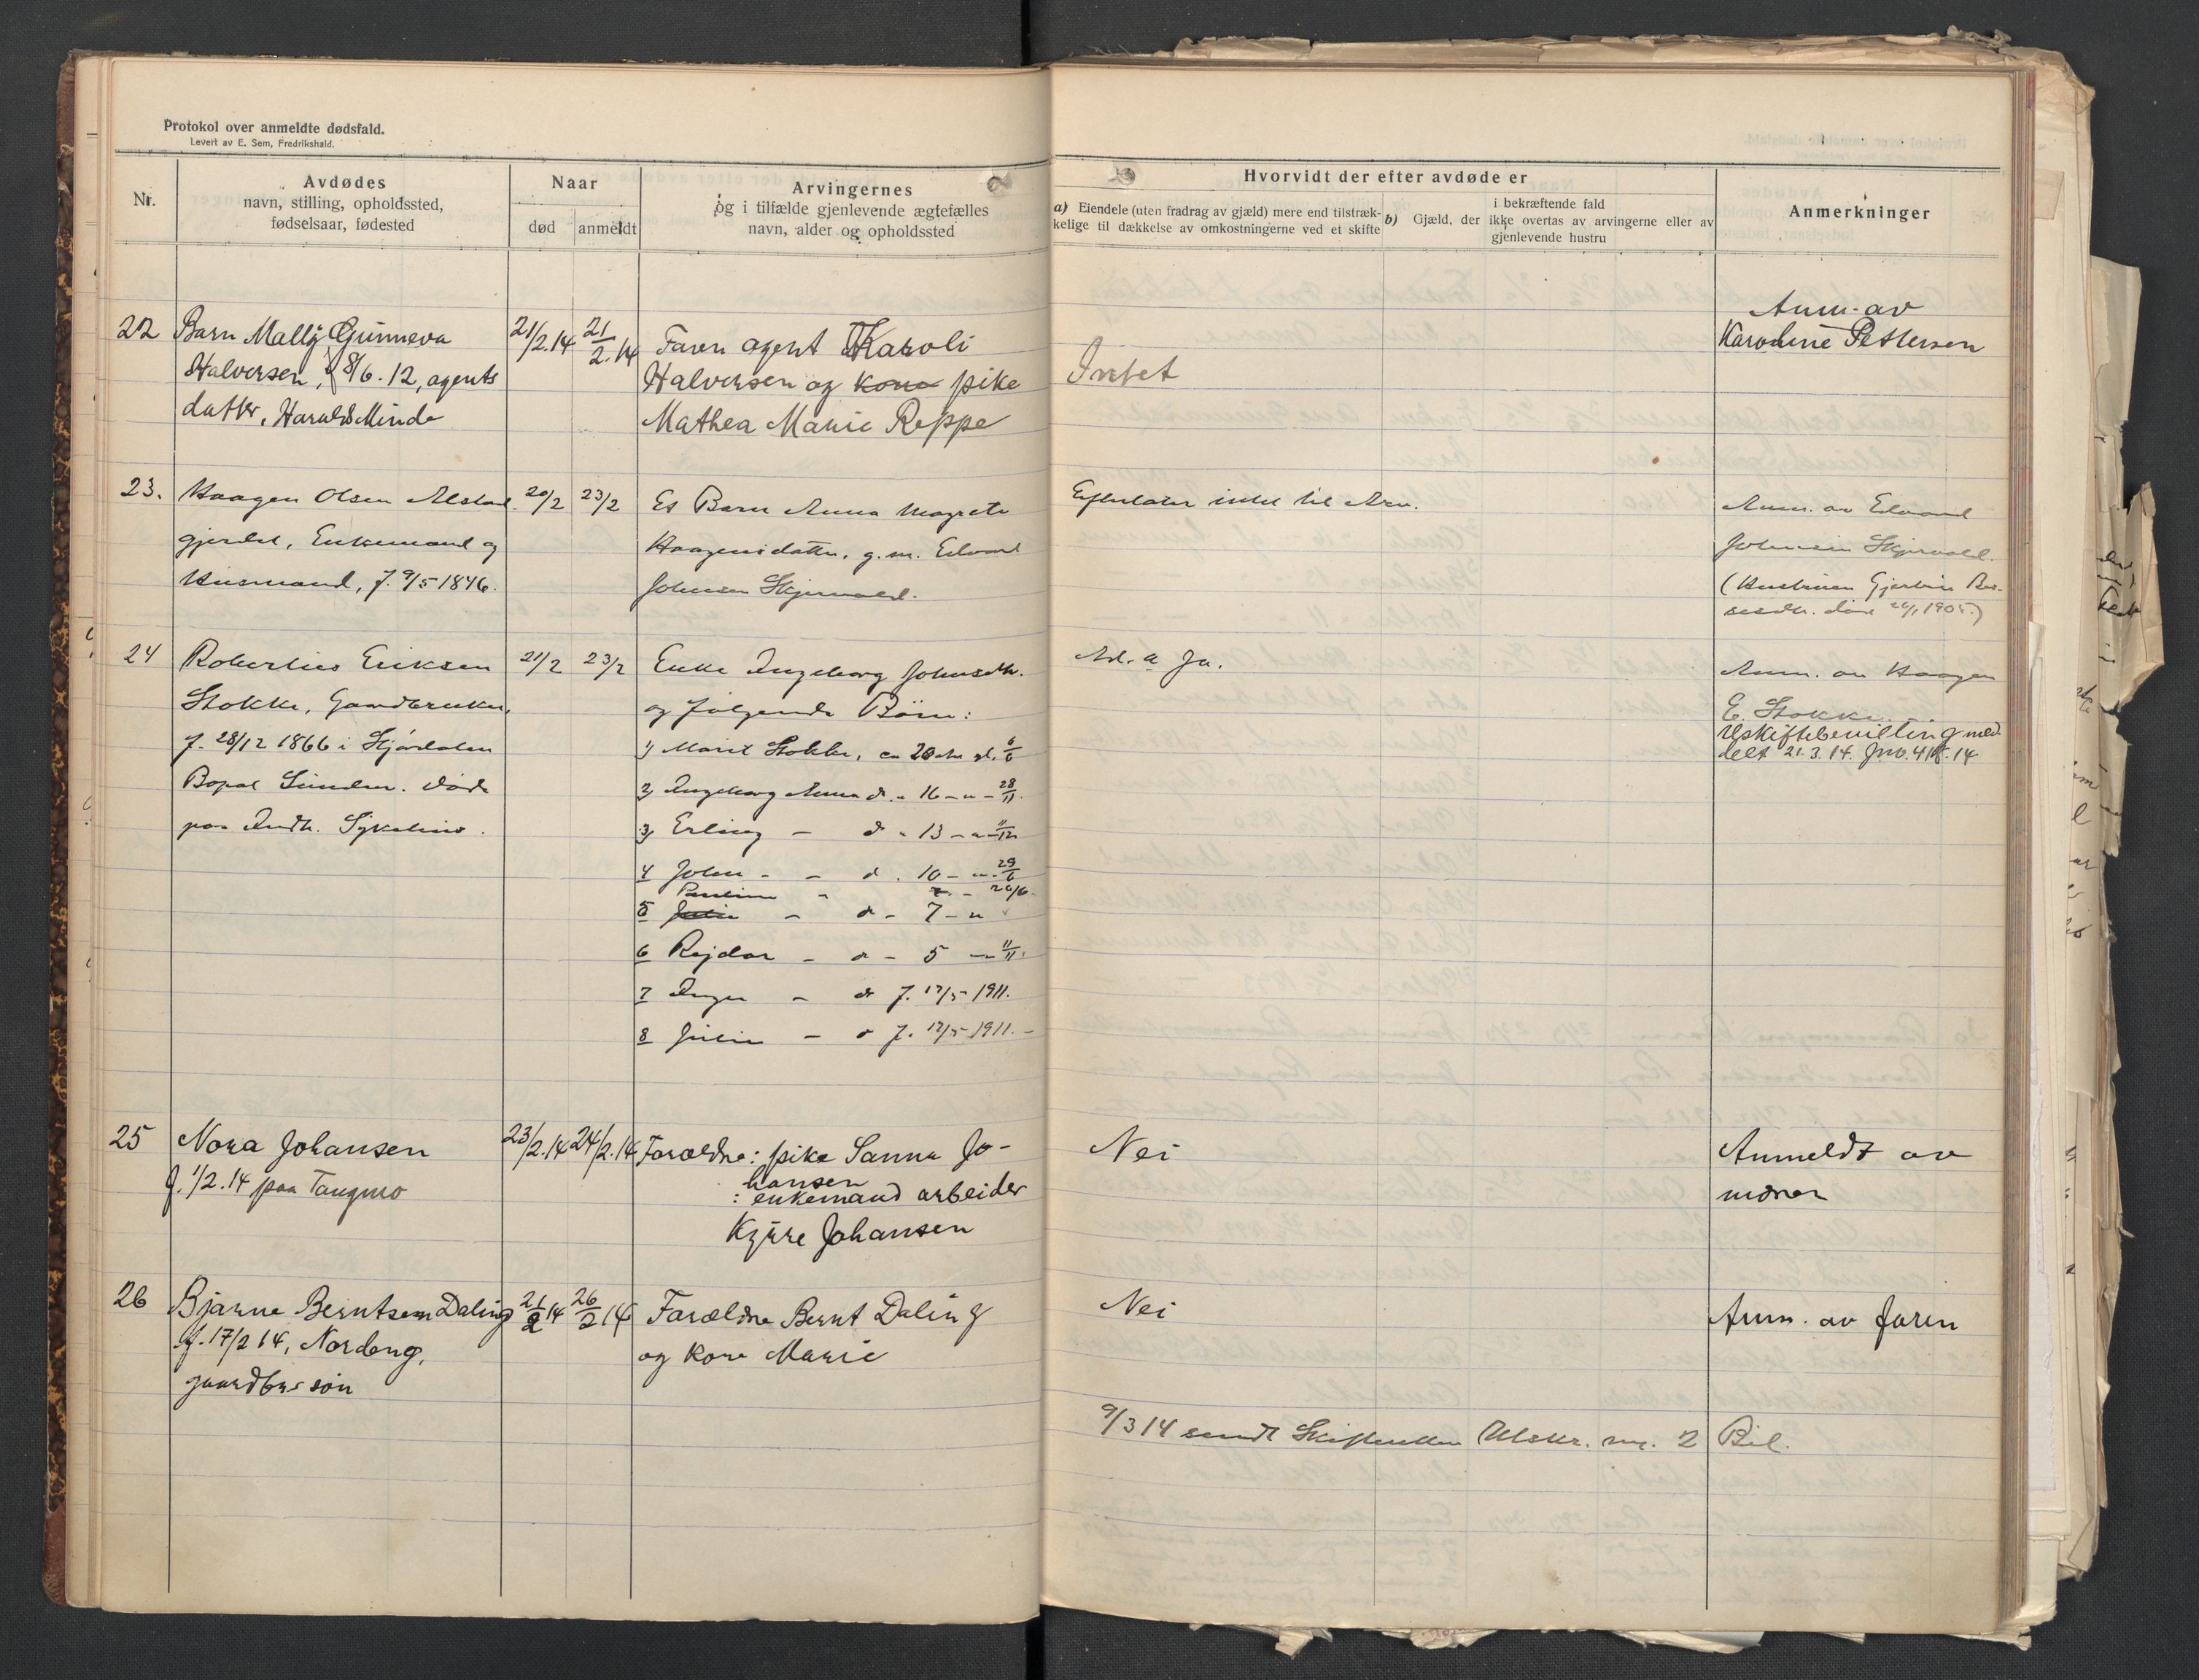 Protokol over anmeldte dødsfald.
Levert av E. Sem, Fredrikshald.
Nr.
Avdødes
navn, stilling, opholdssted,
fødselsaar, fødested
Naar
død
anmeldt
Arvingernes
og i tilfælde gjenlevende ægtefælles
navn, alder og opholdssted
Hvorvidt der efter avdøde er
a) Eiendele (uten fradrag av gjæld) mere end tilstræk-
kelige til dækkelse av omkostningerne ved et skifte
b) Gjæld, der
i bekræftende fald
ikke overtas av arvingerne eller av
gjenlevende hustru
Anmerkninger
22 Barn Mally Gunneva
Halvorsen, f 8/6.12, agents
datter, Harald Minde
21/2.14
21/2.14
Faren agent Karoli
Halvorsen og kone pike
Mathea Marie Reppe
Intet
Anm. av
Karoline Pettersen
23. Haagen Olsen Alstad
gjerdet, Enkemand og
Husmand, f. 9/5 1846.
20/2
23/2
Et Barn Anna Magrete
Haagensdatter, g. m. Edvard
Johnsen Skjervold.
Efterlater intet til Arv.
Anm. av Edvard
Johnsen Skjervold.
(Hustruen Gjertine
døde 1905.)
24 Robertius Eriksen
Stokke, Gaardbruker,
f. 28/12 1866 i Stjørdalen
Bopæl Sunden. Døde
paa Indh. Sykehus.
21/2
23/2
Enke Ingeborg Johnsdtr.
og følgende Børn:
1) Marit Stokke, ca 20 Aar gl. 6/6
2) Ingeborg Anna d. - 16 - " - 28/11.
3) Erling - d - 13 - " - 11/12
4 John - - d. 10 - " - 29/6
Pauline - 7. - 26/6.
5 Julie - d - 7 - "
6 Rejdar - d - 5 - 11/11.
7 Inger - d f. 17/5 1911.
8 Julie - d f. 17/5 1911. -
Ad. a Ja.
Anm. av Haagen
E. Stokke.
Uskiftebevilling med
delt 21.3.14. Jno. 14
25 Nora Johansen
f. 1/2.14 paa Tangmo
23/2.14
24/2.14
Forældre: pike Sanna Jo-
hansen
: enkemand arbeider
Kyrre Johansen
Nei
Anmeldt av
moren
26 Bjarne Berntsen Daling
f. 17/2 14, Nordeng,
gaardbrs søn
21/2 14
26/2 14
Forældre Bernt Daling
og kone Marie
Nei
Anm. av faren
9/3 14 sendt Skifteretten Utskr. nr. 2 Bil.